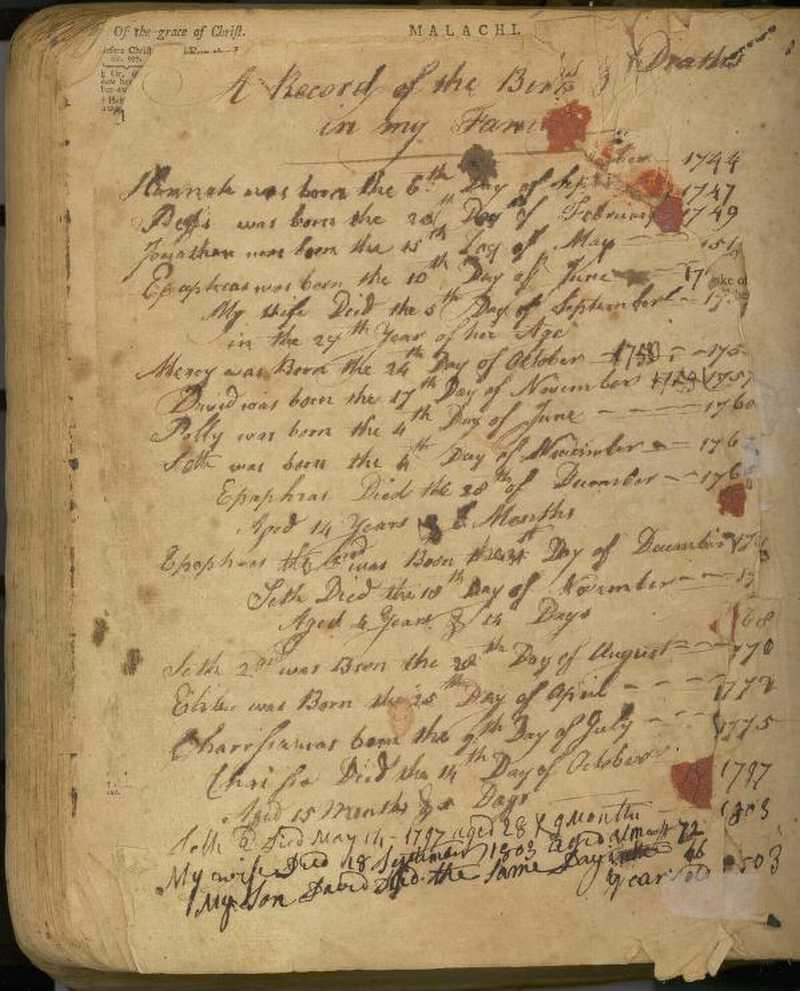 Of the grace of Christ.
MALACHI.
A Record of the Births & Deaths
in my Fami
1744
Hannah was born the 6th Day of Sep 1747
was born the 20th Day of February 1749
Jonathan was born the 15th Day of May 51
Epaphras was born the 10th Day of June 17
My Wife Died the 5th Day of September 17
in the 24th Year of her Age
Mercy was Born the 24th Day of October 175
David was born the 17th Day of November 1757
Polly was born the 4th Day of June 1760
Seth was born the 4th Day of November 176
Epaphras Died the 28th of December 176
Aged 14 Years & 6 Months
Epaphras the 2nd was Born the Day of December 17
Seth Died the 18th Day of November
Aged 4 Years & 14 Days
68
Seth 2nd was Born the 28th Day of August 1770
was Born the 25th Day of April 1772
was born the 9th Day of July 1775
Died the 14th Day of October
Aged 15 Months & 5 Days 1797
Seth 2 Died May 14 1797 aged 28 Y 9 Months 1803
My wife Died 18 September 1803 aged almost 72
My Son David Died the same Day 46
years old 1803